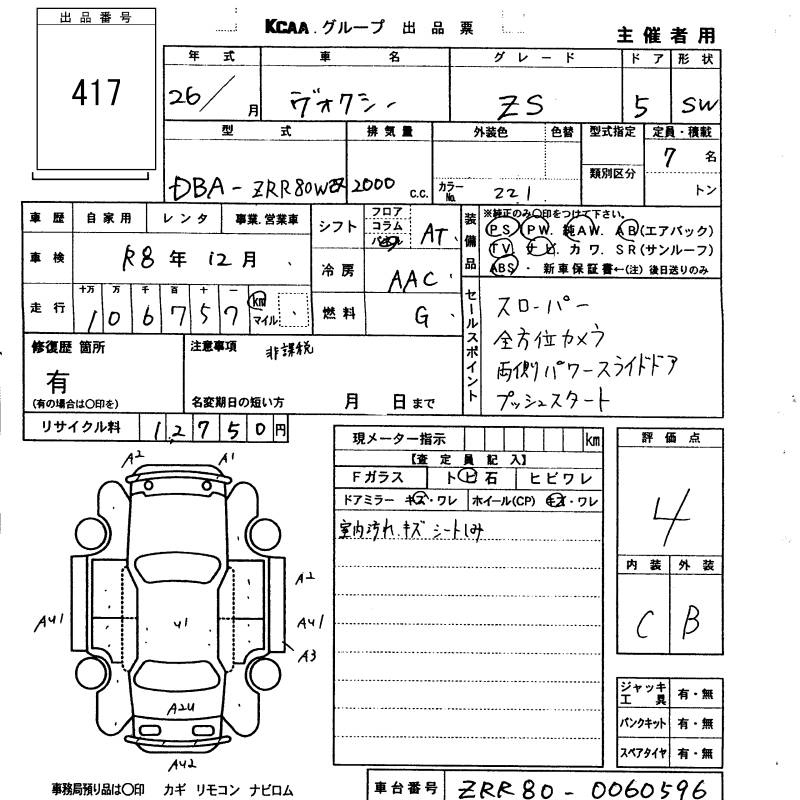 出品番号
417
KCAA.グループ 出品票
主催者用
年式 車名 グレード ドア 形状
26/ 月 ヴォクシー ZS 5 SW
型式 排気量 外装色 色替 型式指定 定員・積載
DBA-ZRR80W 2000 c.c. カラーNo. 221 類別区分 7 名
トン
車歴 自家用 レンタ 事業.営業車
車検 R8年12月
走行 十万 万 千 百 十 一
106757 km マイル
シフト フロア コラム AT
冷房 AAC
燃料 G
装備品
※純正のみ〇印をつけて下さい。
PS. PW. 純AW. AB(エアバック)
TV. ナビ. カワ. SR(サンルーフ)
ABS・新車保証書←(注)後日送りのみ
セールスポイント
スローパー
全方位カメラ
両側パワースライドドア
プッシュスタート
修復歴 箇所
有
(有の場合は〇印を)
注意事項 非課税
名変期日の短い方 月 日まで
リサイクル料 12,750円
現メーター指示 km
【査定員記入】
Fガラス ト ビ 石 ヒビワレ
ドアミラー キズ・ワレ ホイール(CP) キズ・ワレ
室内汚れ.キズ シートしみ
評価点
4
内装 外装
C B
A2 A1
A2
A41 U1 A41
A3
A2U
A42
ジャッキ工具 有・無
パンクキット 有・無
スペアタイヤ 有・無
事務局預り品は〇印 カギ リモコン ナビロム
車台番号 ZRR80-0060596